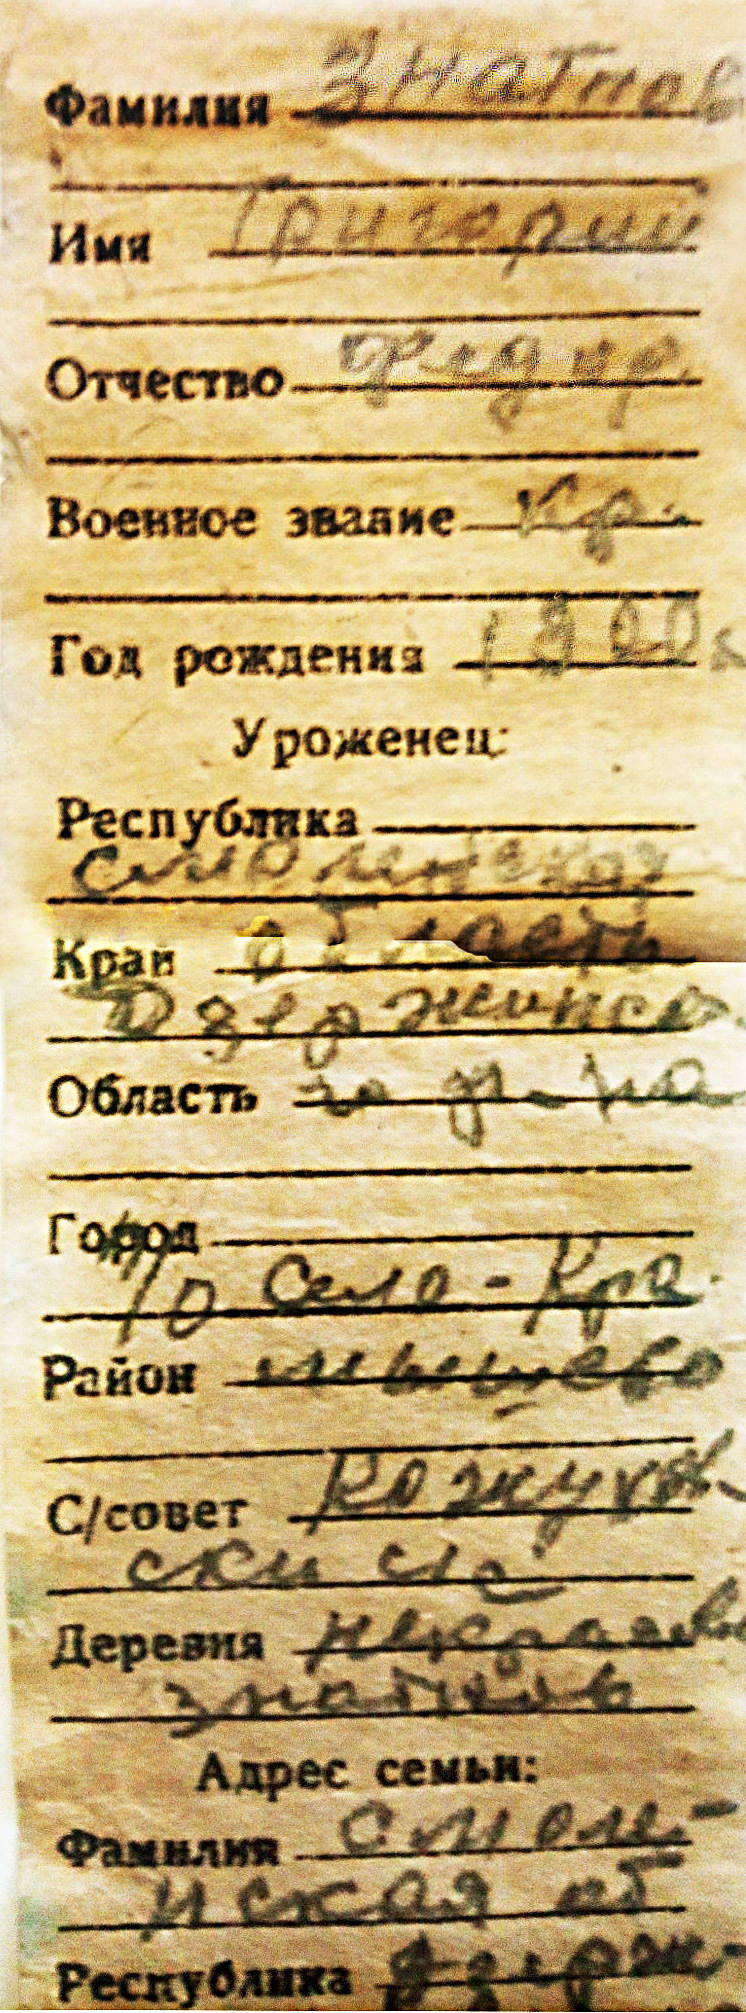 Фамилия Знатнов
Имя Григорий
Отчество Федор.
Военное звание Кр.
Год рождения
Уроженец:
Республика
Смоленская
Край область
Дзержинск.
Область го р-на
Город
П/о Село - Кра
Район
С/совет Кожухов-
ский
Деревня Некрасово
Знатнов
Адрес семьи:
Фамилия Смоле-
нская об
Республика Дзерж-